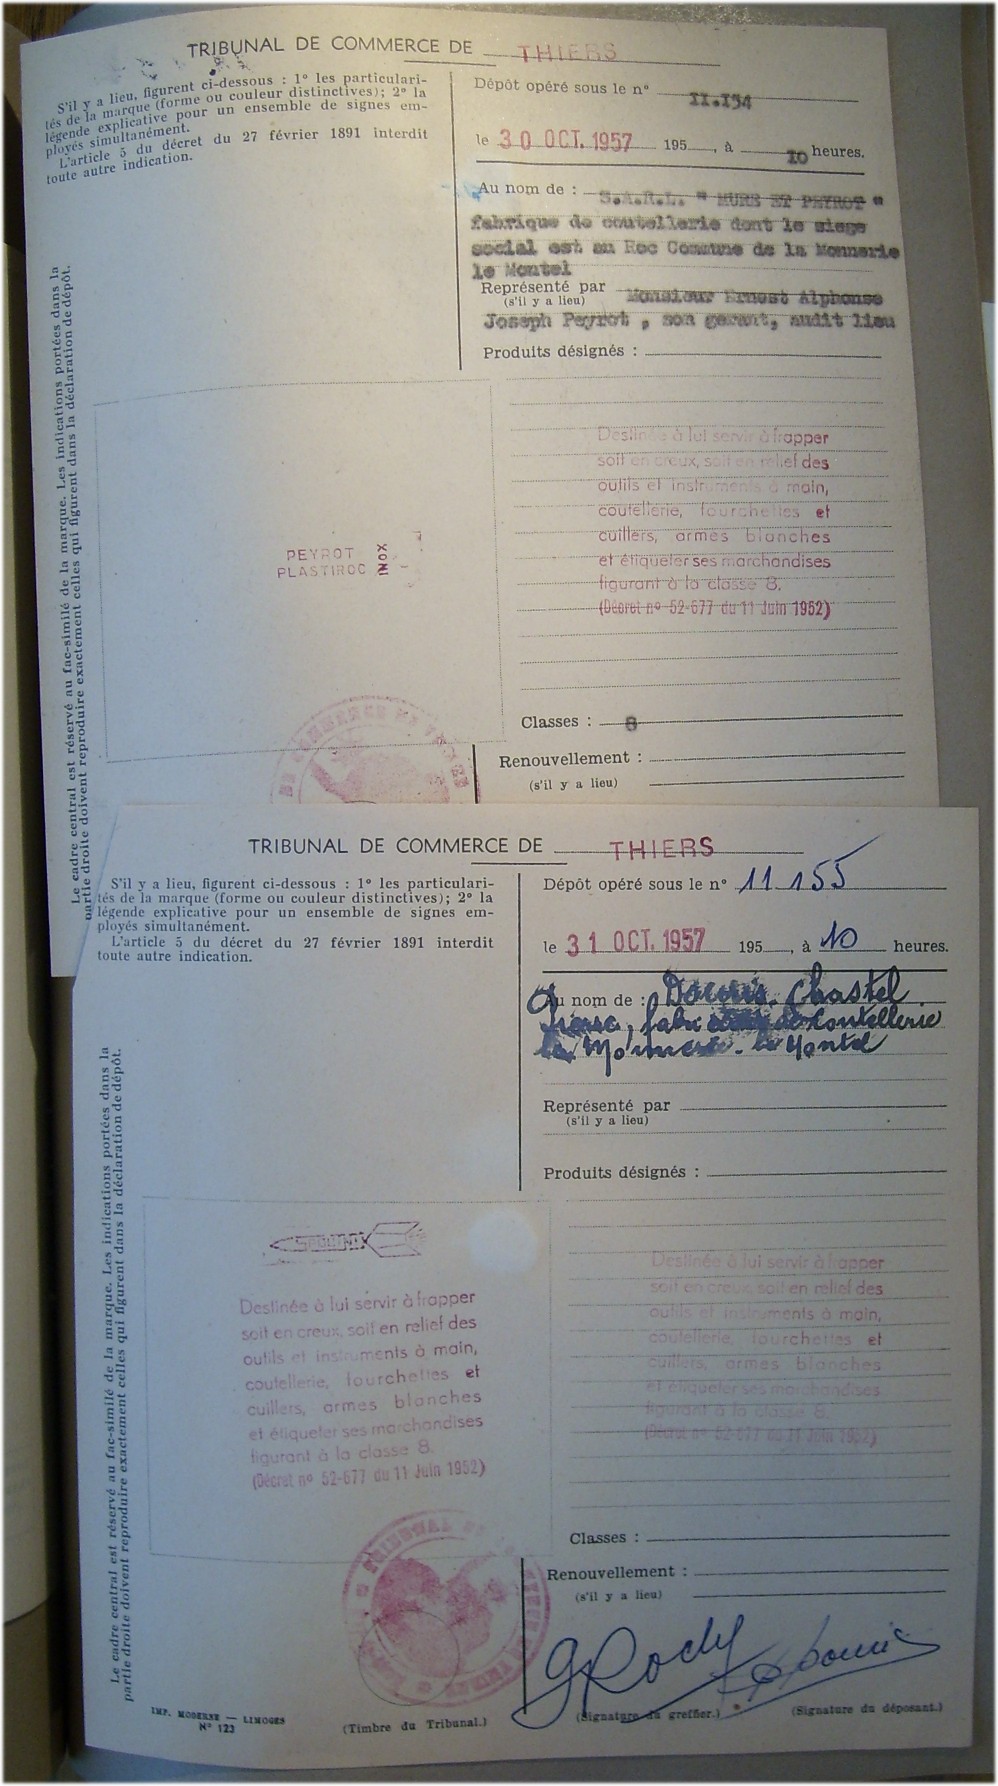 TRIBUNAL DE COMMERCE DE THIERS
S'il y a lieu, figurent ci-dessous : 1º les particulari-
tés de la marque (forme ou couleur distinctives); 2º la
légende explicative pour un ensemble de signes em-
ployés simultanément.
L'article 5 du décret du 27 février 1891 interdit
toute autre indication.
Dépôt opéré sous le nº II.I54
le 30 OCT. 1957 195 , à IO heures.
Au nom de : S.A.R.L. " MURE ET PEYROT "
fabrique de coutellerie dont le siege
social est au Roc Commune de la Monnerie
le Montel
Représenté par Monsieur Ernest Alphonse
(s'il y a lieu)
Joseph Peyrot , son gerant, audit lieu
Produits désignés :
Le cadre central est réservé au fac-similé de la marque. Les indications portées dans la
partie droite doivent reproduire exactement celles qui figurent dans la déclaration de dépôt.
PEYROT
PLASTIROC
INOX
Destinée à lui servir à frapper
soit en creux, soit en relief des
outils et instruments à main,
coutellerie, fourchettes et
cuillers, armes blanches
et étiqueter ses marchandises
figurant à la classe 8.
(Décret nº 52-677 du 11 Juin 1952)
Classes : 8
Renouvellement :
(s'il y a lieu)
TRIBUNAL DE COMMERCE DE THIERS
S'il y a lieu, figurent ci-dessous : 1º les particulari-
tés de la marque (forme ou couleur distinctives); 2º la
légende explicative pour un ensemble de signes em-
ployés simultanément.
L'article 5 du décret du 27 février 1891 interdit
toute autre indication.
Dépôt opéré sous le nº 11 155
le 31 OCT. 1957 195 , à 10 heures.
Au nom de : Chastel
de Coutellerie
la Monnerie - le Montel
Représenté par
(s'il y a lieu)
Produits désignés :
Le cadre central est réservé au fac-similé de la marque. Les indications portées dans la
partie droite doivent reproduire exactement celles qui figurent dans la déclaration de dépôt.
Destinée à lui servir à frapper
soit en creux, soit en relief des
outils et instruments à main,
coutellerie, fourchettes et
cuillers, armes blanches
et étiqueter ses marchandises
figurant à la classe 8.
(Décret nº 52-677 du 11 Juin 1952)
Destinée à lui servir à frapper
soit en creux, soit en relief des
outils et instruments à main,
coutellerie, fourchettes et
cuillers, armes blanches
et étiqueter ses marchandises
figurant à la classe 8.
(Décret nº 52-677 du 11 Juin 1952)
Classes :
Renouvellement :
(s'il y a lieu)
IMP. MODERNE — LIMOGES
Nº 123
(Timbre du Tribunal.)
(Signature du greffier.)
(Signature du déposant.)